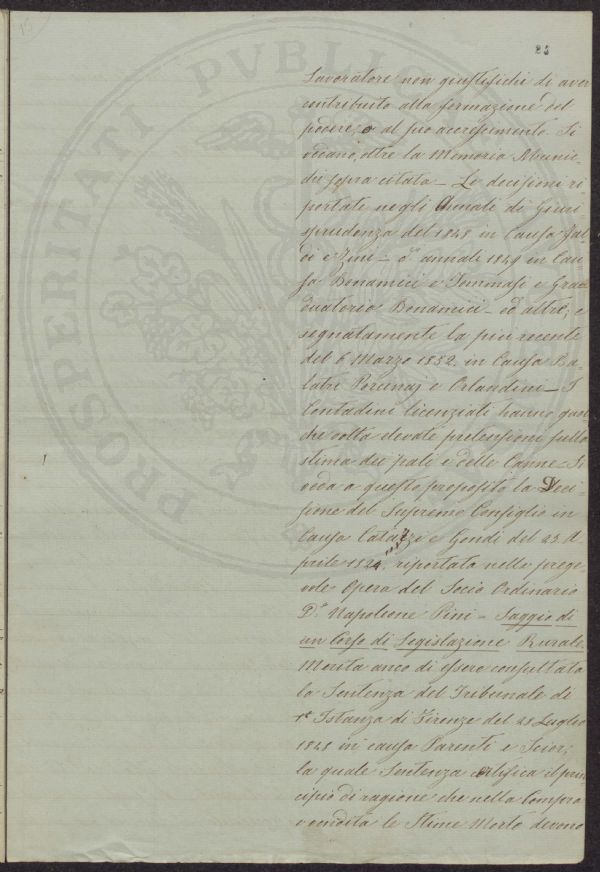 15
23
PROSPERITATI PVBLICAE
Lavoratori non giustifichi di aver
contribuito alla formazione del
podere, o al suo accrescimento. Si
vedano, oltre la Memoria Munic-
chi sopra citata – Le decisioni ri
portate negli Annali di Giuri
sprudenza del 1848 in Causa Gal-
di e Zini – d.i annali 1849 in Cau
sa Bonamici e Tommasi e Grad
duatorio Bonamici – ed altre, e
segnatamente la più recente
del 6 Marzo 1852. in Causa Ba-
latri e Orlandini – I
Contadini licenziati hanno qual
che volta elevate pretensioni sulla
stima dei pali e delle Canne. Si
veda a questo proposito la Deci-
sione del Supremo Consiglio in
Causa e Gondi del 23. A
prile 1824, riportata nella prege
vole Opera del Socio Ordinario
D.r Napoleone Pini – Saggio di
un Corso di Legislazione Rurale.
Merita anco di essere consultata
la Sentenza del Tribunale di
1.a Istanza di Firenze del 28 Luglio
1848 in causa Parenti e
la quale Sentenza il prin
cipio di ragione che nella Compra
e vendita le Stime Morte devono